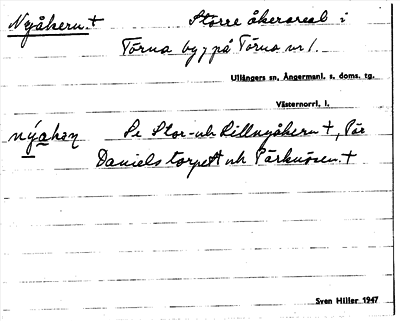 Nyåkern.+ Större åkerareal i
Törna by, på Törna nr 1.
Ullångers sn, Ångermanl. s. doms. tg.
Västernorrl. l.
nýạkən Se Stor- och Lillnyåkern +, Pär
Danielstorpet och Pärknösen.+
Sven Hiller 1947